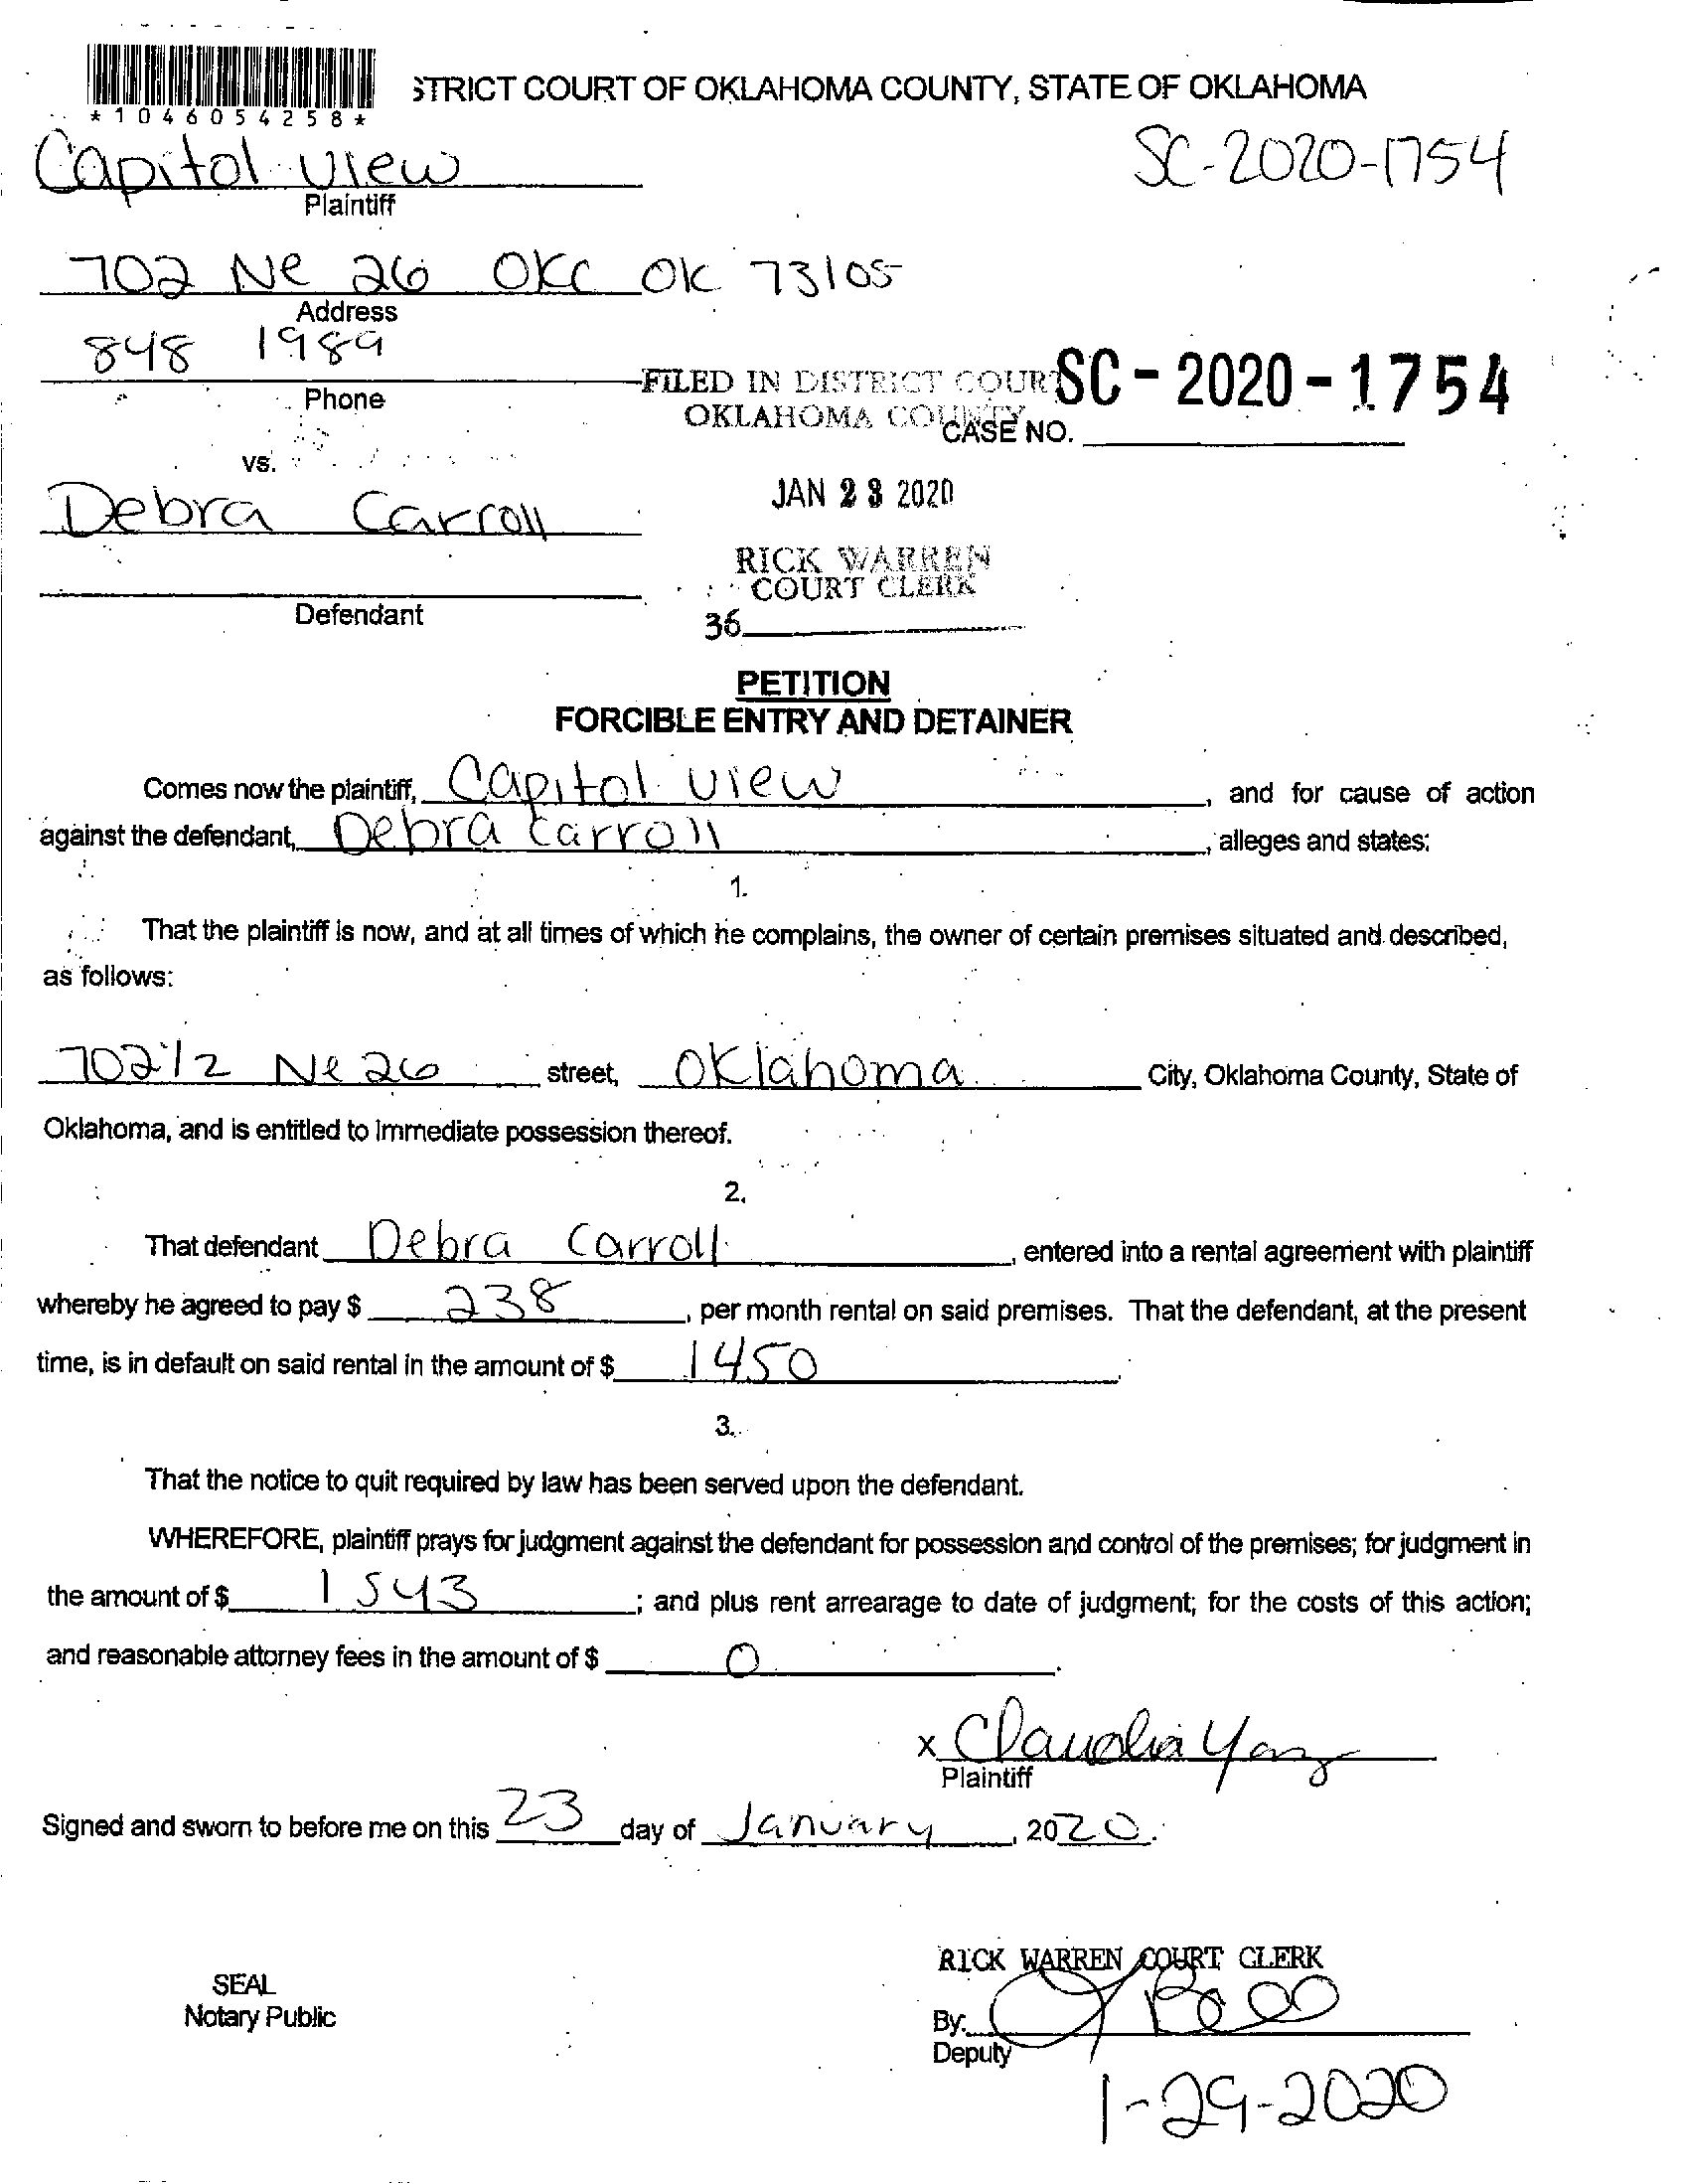 STRICT COURT OF OKLAHOMA COUNTY, STATE OF OKLAHOMA
*1046054258*
Capitol View
SC-2020-1754
Plaintiff
702 Ne 26 OKC OK 73105
Address
848 1989
Phone
FILED IN DISTRICT COURT
OKLAHOMA COUNTY
SC - 2020 - 1754
CASE NO.
vs.
JAN 23 2020
Debra Carroll
RICK WARREN
COURT CLERK
Defendant
36
PETITION
FORCIBLE ENTRY AND DETAINER
Comes now the plaintiff, Capitol View, and for cause of action
against the defendant, Debra Carroll, alleges and states:
1.
That the plaintiff is now, and at all times of which he complains, the owner of certain premises situated and described,
as follows:
702 1/2 Ne 26 street, Oklahoma City, Oklahoma County, State of
Oklahoma, and is entitled to immediate possession thereof.
2.
That defendant Debra Carroll, entered into a rental agreement with plaintiff
whereby he agreed to pay $ 238, per month rental on said premises. That the defendant, at the present
time, is in default on said rental in the amount of $ 1450.
3.
That the notice to quit required by law has been served upon the defendant.
WHEREFORE, plaintiff prays for judgment against the defendant for possession and control of the premises; for judgment in
the amount of $ 1543; and plus rent arrearage to date of judgment; for the costs of this action;
and reasonable attorney fees in the amount of $ 0.
x Claudia
Plaintiff
Signed and sworn to before me on this 23 day of January, 2020.
RICK WARREN COURT CLERK
SEAL
Notary Public
By:
Deputy
1-29-2020